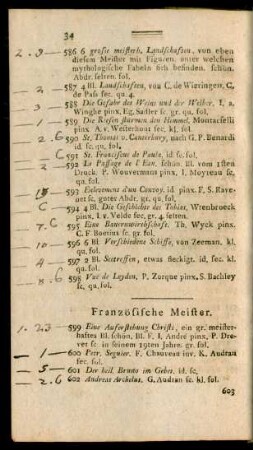 34
2. 9 — 586 6 große meisterh. Landschaften, von eben
diesem Meister mit Figuren, unter welchen
mythologische Fabeln sich befinden. schön.
Abdr. selten. fol.
587 4 Bl. Landschaften, von C. de Wieringen, C.
de Pass sc. qu. 4.
3 — 588 Die Gefahr des Weins und der Weiber, I. a.
Winghe pinx. Eg. Sadler sc. gr. qu. fol.
1 — 589 Die Riesen stürmen den Himmel, Montacselli
pinx. A. v. Westerhout sec. kl. fol.
2. 6 590 St. Thomas v. Canterbury, nach G. F. Benardi
id sc. qu. fol.
6 591 St. Franciscus de Paula. id sc. fol.
2 — 592 Le Passage de l'Eau. schön. Bl. vom 1sten
Druck. P. Wouvermans pinx. I. Moyreau sc.
qu. fol.
593 Enlevement d'un Convoy. id pinx. F. S. Ravenet
sc. guter Abdr. gr. qu. fol.
594 4 Bl. Die Geschichte des Tobias, Wtenbroeck
pinx. I. v. Velde sec. gr. 4. selten.
595 Eine Bauernwirthschaft. Th. Wyck pinx.
C. F. Boetius sc. gr. fol.
596 6 Bl. Verschiedene Schiffe, von Zeeman. kl.
qu. fol.
4 — 597 2 Bl. Seetreffen, etwas fleckigt. id sc. kl.
qu. fol.
598 Vue de Leyden, P. Zorque pinx. S. Bachley
sc. qu. fol.
Französische Meister.
1. 23 — 599 Eine Auferstehung Christi, ein gr. meisterhaftes
Bl. schön. Bl. F. I. André pinx. P. Drevet
sc in seinem 19ten Jahre. gr. fol.
1 — 600 Petr. Seguier. F. Chauveau inv. K. Audran
sec. fol.
5 — 601 Der heil. Bruno im Gebet. id. sc.
2. 6 602 Andreas Archelus. G. Audran sc. kl. fol.
603